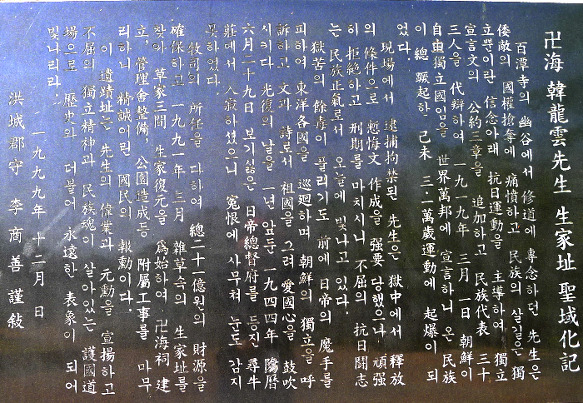 卍海 韓龍雲先生 生家址 聖域化記
百潭寺의 幽谷에서 修道에 專念하던 先生은
倭敵의 國權搶奪에 痛憤하고 民族의 살길은 獨
立뿐이란 信念아래 抗日運動을 主導하여 獨立
宣言文의 公約三章을 追加하고 民族代表 三十
三人을 代辯하여 一九一九年 三月 一日 朝鮮이
自由獨立國임을 世界萬邦에 宣言하니 온 民族
이 總蹶起한 己未 三·一萬歲運動에 起爆이 되
었다.
現場에서 逮捕拘禁된 先生은 獄中에서 釋放
의 條件으로 懺悔文 作成을 强要당했으나 頑强
히 拒絶하고 刑期를 마치시니 不屈의 抗日鬪志
는 民族正氣로서 오늘에 빛나고 있다.
獄苦의 餘毒이 풀리기도 前에 日帝의 魔手를
피하여 東洋各國을 巡廻하며 朝鮮의 獨立을 呼
訴하고 文과 詩로서 祖國을 그려 愛國心을 鼓吹
시키다 光復의 날을 一年 앞둔 一九四四年 陰曆
六月二十九日 보기싫은 日帝總督府를 등진 尋牛
莊에서 入寂하셨으니 寃恨에 사무쳐 눈도 감지
못하였다.
牧民의 所任을 다하여 總二十一億원의 財源을
確保하고 一九九一年 三月 雜草속의 生家址를
찾아 草家三間 生家復元을 爲始하여 卍海祠 建
立 管理舍整備, 公園造成등 附屬工事를 마무
리하니 精誠어린 國民의 報勳이다.
이 遺蹟址는 先生의 偉業과 元勳을 宣揚하고
不屈의 獨立精神과 民族魂이 살아있는 護國道
場으로 歷史와 더불어 永遠한 表象이 되어
빛나리라.
一九九九年 十二月 日
洪城郡守 李商善 謹敍